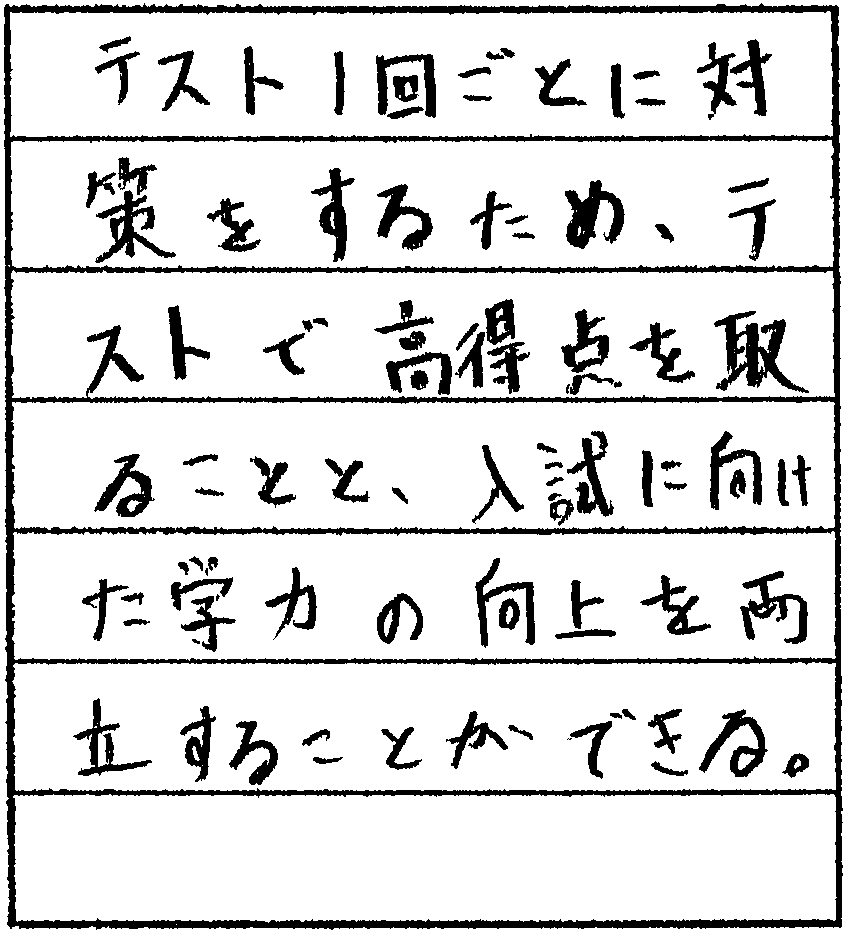 テスト1回ごとに対
策をするため、テ
ストで高得点を取
ることと、入試に向け
た学力の向上を両
立することができる。